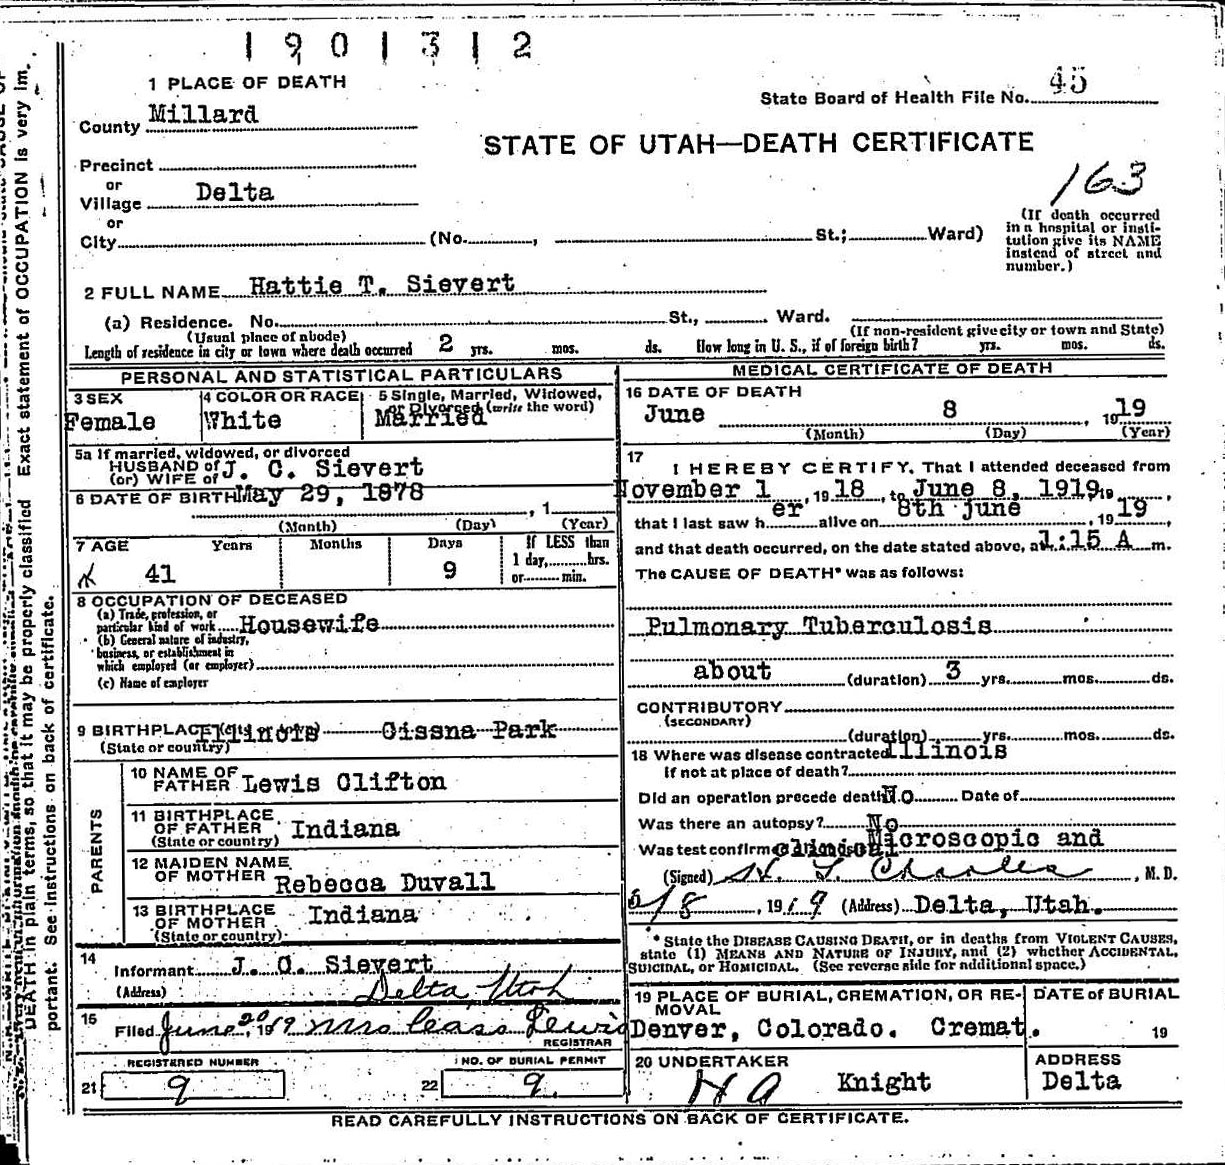 1901312
1 PLACE OF DEATH
State Board of Health File No. 45
County Millard
STATE OF UTAH—DEATH CERTIFICATE
Precinct
or
Village Delta
163
or
City (No. , St.; Ward)
(If death occurred
in a hospital or insti-
tution give its NAME
instead of street and
number.)
2 FULL NAME Hattie T. Sievert
(a) Residence. No. St., Ward.
(Usual place of abode) (If non-resident give city or town and State)
Length of residence in city or town where death occurred 2 yrs. mos. ds. How long in U. S., if of foreign birth? yrs. mos. ds.
PERSONAL AND STATISTICAL PARTICULARS
3 SEX 4 COLOR OR RACE 5 Single, Married, Widowed,
or Divorced (write the word)
Female White Married
5a If married, widowed, or divorced
HUSBAND of
(or) WIFE of J. C. Sievert
6 DATE OF BIRTH May 29, 1878 , 1
(Month) (Day) (Year)
7 AGE Years Months Days If LESS than
1 day, hrs.
or min.
41 9
8 OCCUPATION OF DECEASED
(a) Trade, profession, or
particular kind of work Housewife
(b) General nature of industry,
business, or establishment in
which employed (or employer)
(c) Name of employer
9 BIRTHPLACE Illinois Cissna Park
(State or country)
PARENTS
10 NAME OF
FATHER Lewis Clifton
11 BIRTHPLACE
OF FATHER Indiana
(State or country)
12 MAIDEN NAME
OF MOTHER Rebecca Duvall
13 BIRTHPLACE
OF MOTHER Indiana
(State or country)
14
Informant J. C. Sievert
(Address) Delta, Utah
15
Filed June 20, 1919 Mrs Cass Lewis
REGISTRAR
REGISTERED NUMBER NO. OF BURIAL PERMIT
21 9 22 9
MEDICAL CERTIFICATE OF DEATH
16 DATE OF DEATH
June 8 , 1919
(Month) (Day) (Year)
17
I HEREBY CERTIFY, That I attended deceased from
November 1 , 1918 , to June 8, 1919 19 ,
that I last saw her alive on 8th june , 1919 ,
and that death occurred, on the date stated above, at 1:15 A m.
The CAUSE OF DEATH* was as follows:
Pulmonary Tuberculosis
about (duration) 3 yrs. mos. ds.
CONTRIBUTORY
(SECONDARY)
(duration) yrs. mos. ds.
18 Where was disease contracted Illinois
if not at place of death?
Did an operation precede death? No Date of
Was there an autopsy? No
Was test confirmed Microscopic and
clinical
(Signed) H. L. Charles , M. D.
6/8 , 1919 (Address) Delta, Utah.
* State the DISEASE CAUSING DEATH, or in deaths from VIOLENT CAUSES,
state (1) MEANS AND NATURE OF INJURY, and (2) whether ACCIDENTAL,
SUICIDAL, or HOMICIDAL. (See reverse side for additional space.)
19 PLACE OF BURIAL, CREMATION, OR RE-
MOVAL
DATE of BURIAL
Denver, Colorado. Cremat. 19
20 UNDERTAKER ADDRESS
H A Knight Delta
READ CAREFULLY INSTRUCTIONS ON BACK OF CERTIFICATE.
DEATH in plain terms, so that it may be properly classified Exact statement of OCCUPATION is very im-
portant. See instructions on back of certificate.